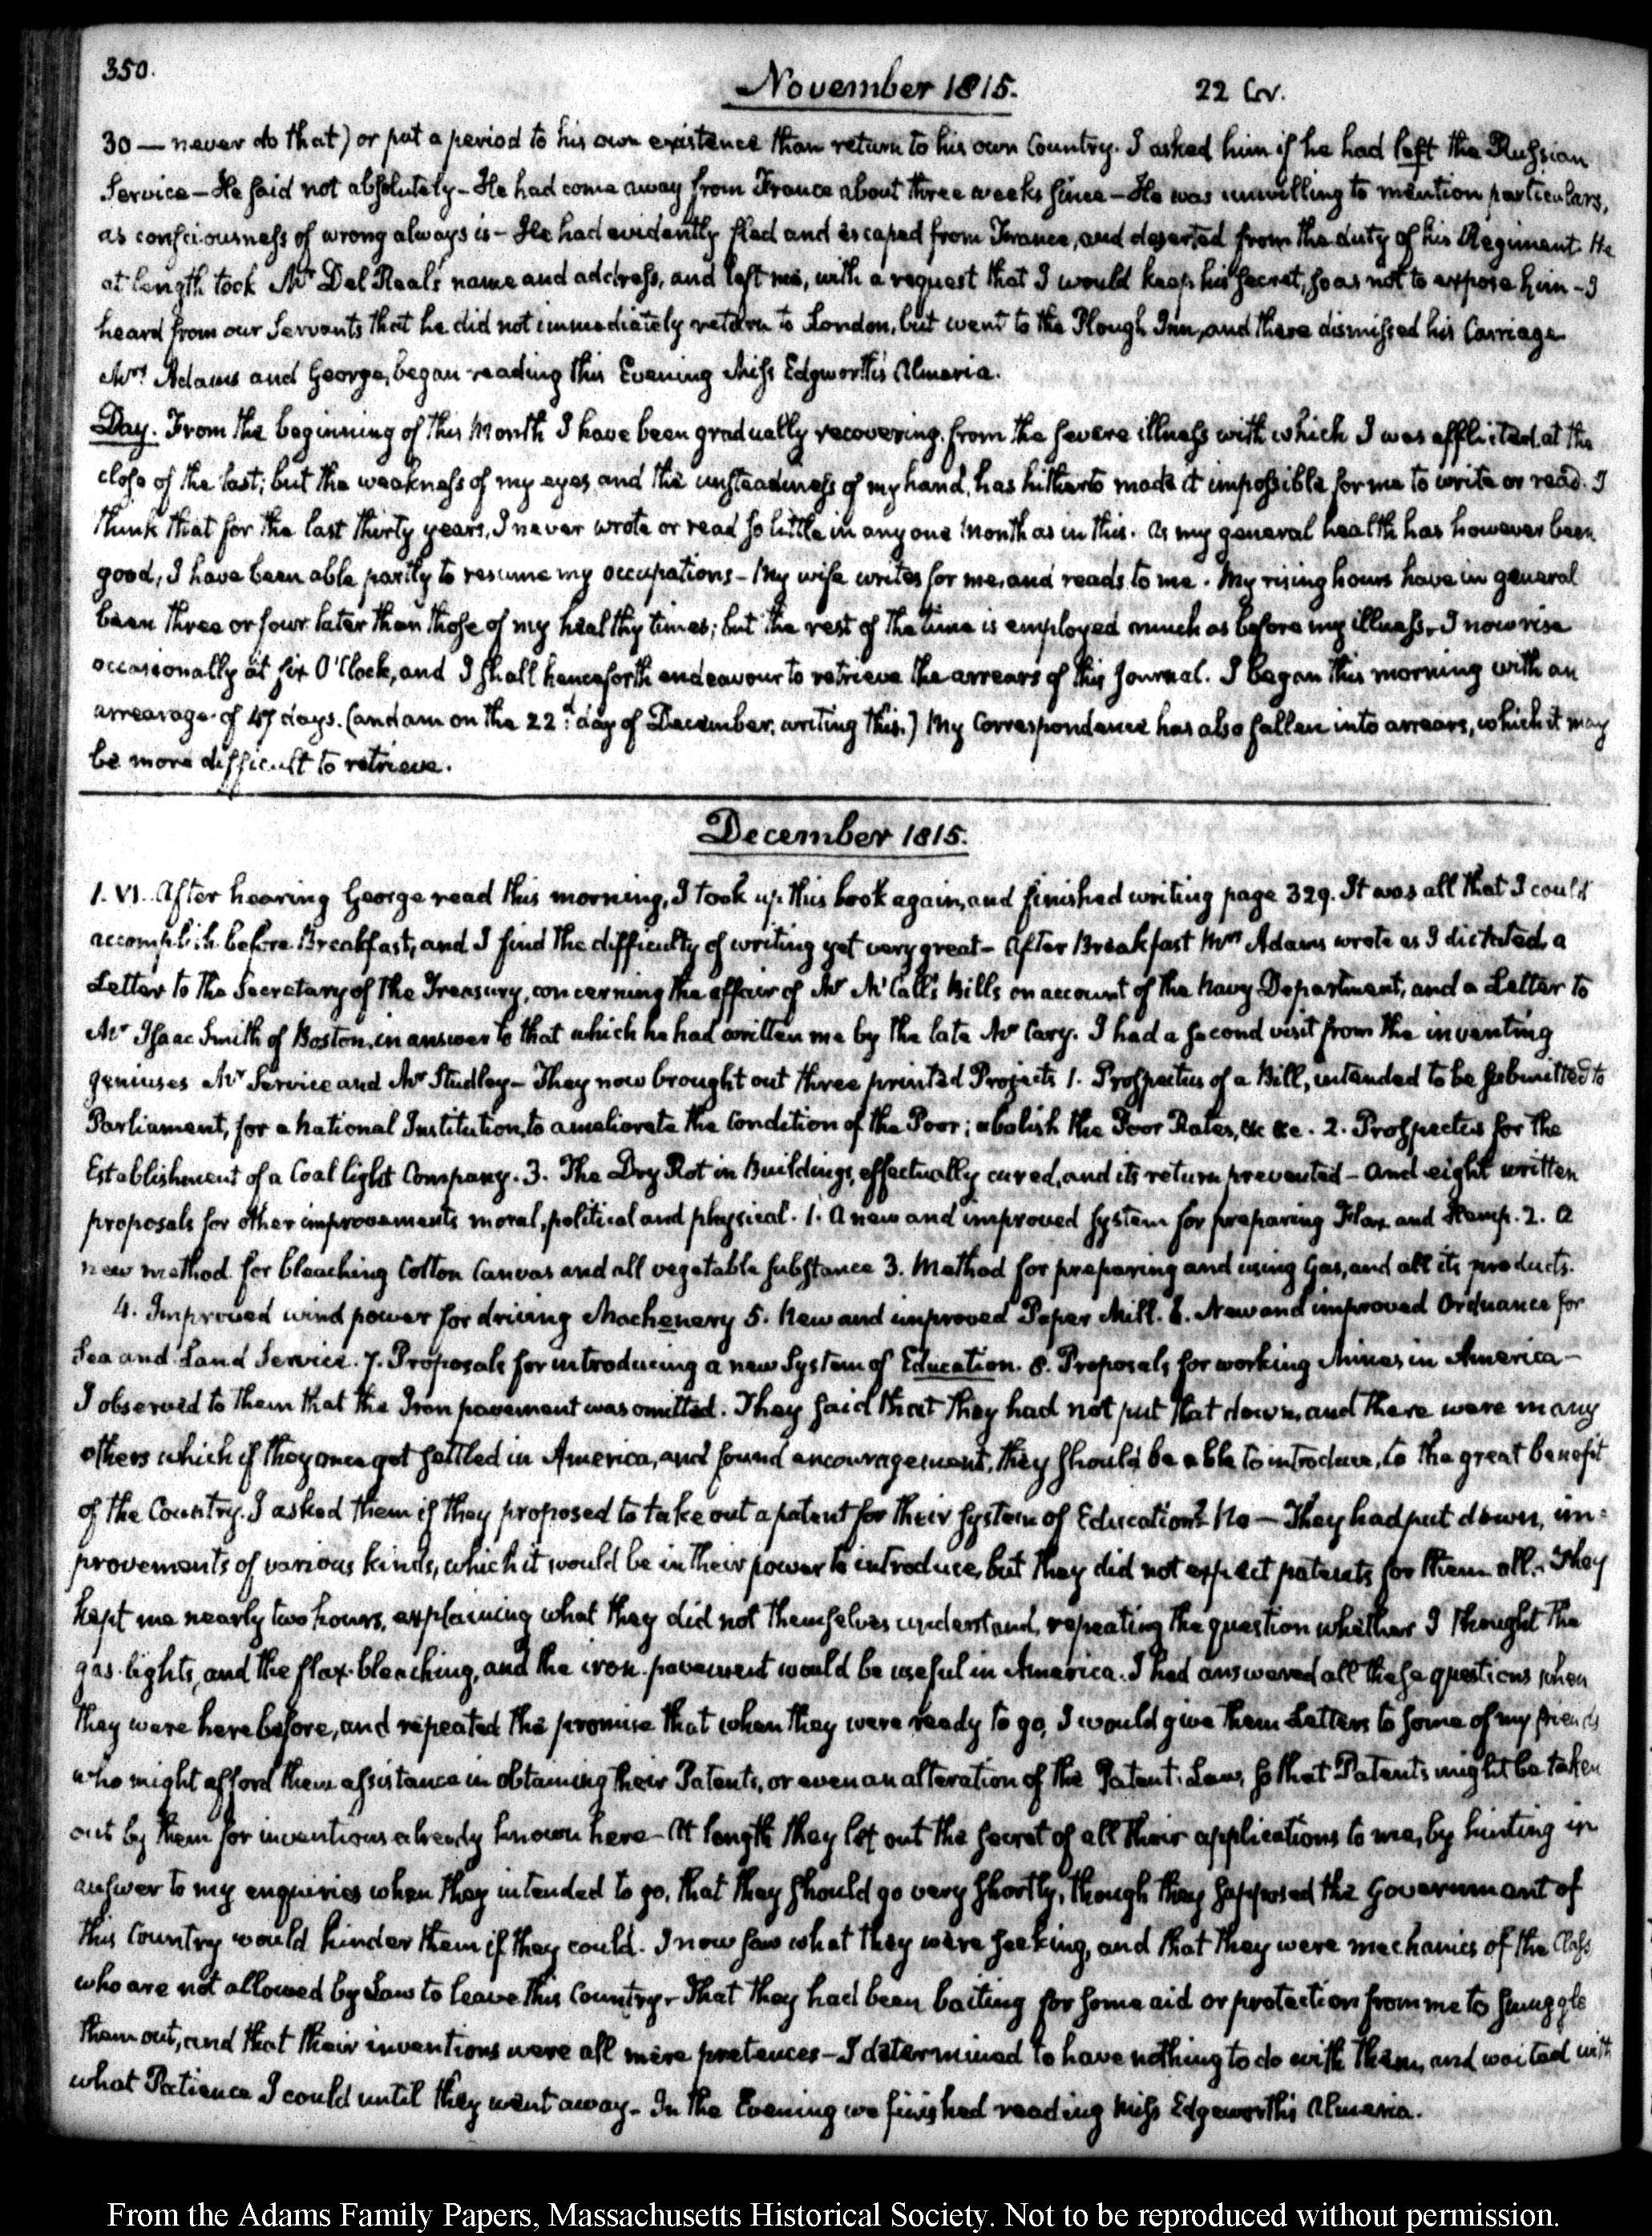 350.
November 1815. 22 Cor.
30 — never do that) or put a period to his own existence than return to his own Country. I asked him if he had left the Russian
Service — He said not absolutely — He had come away from France about three weeks since — He was unwilling to mention particulars,
as consciousness of wrong always is — He had evidently fled and escaped from France, and deserted from the duty of his Regiment. He
at length took Mr Del Real's name and address, and left me, with a request that I would keep his secret, so as not to expose him — I
heard from our Servants that he did not immediately return to London, but went to the Plough Inn, and there dismissed his Carriage
Mrs Adams and George, began reading this Evening Miss Edgworth's Almeria.
Day. From the beginning of this Month I have been gradually recovering from the severe illness with which I was afflicted at the
close of the last; but the weakness of my eyes, and the unsteadiness of my hand, has hitherto made it impossible for me to write or read. I
think that for the last thirty years, I never wrote or read so little in any one Month as in this. As my general health has however been
good, I have been able partly to resume my occupations — My wife writes for me, and reads to me. My rising hours have in general
been three or four later than those of my healthy times; but the rest of the time is employed much as before my illness. I now rise
occasionally at six O'Clock, and I shall henceforth endeavour to retrieve the arrears of this Journal. I began this morning with an
arrearage of 47 days. (and am on the 22d day of December, writing this.) My Correspondence has also fallen into arrears, which it may
be more difficult to retrieve.
December 1815.
1. VI. After hearing George read this morning, I took up this book again, and finished writing page 329. It was all that I could
accomplish before Breakfast, and I find the difficulty of writing yet very great — After Breakfast Mrs Adams wrote as I dictated, a
Letter to the Secretary of the Treasury, concerning the affair of Mr McCall's Bills on account of the Navy Department, and a Letter to
Mr Isaac Smith of Boston, in answer to that which he had written me by the late Mr Cary. I had a second visit from the inventing
geniuses Mr Service and Mr Studley — They now brought out three printed Projects 1. Prospectus of a Bill, intended to be submitted to
Parliament, for a National Institution, to ameliorate the Condition of the Poor; abolish the Poor Rates, &c &c. 2. Prospectus for the
Establishment of a Coal light Company. 3. The Dry Rot in Buildings, effectually cured, and its return prevented — And eight written
proposals for other improvements moral, political and physical. 1. A new and improved system for preparing Flax and Hemp. 2. A
new method for bleaching Cotton Canvas and all vegetable substance 3. Method for preparing and using Gas, and all its products.
4. Improved wind power for driving Machenery 5. New and improved Paper Mill. 6. New and improved Ordnance for
Sea and Land Service. 7. Proposals for introducing a new System of Education. 8. Proposals for working Mines in America —
I observed to them that the Iron pavement was omitted. They said that they had not put that down, and there were many
others which if they once got settled in America, and found encouragement, they should be able to introduce, to the great benefit
of the Country. I asked them if they proposed to take out a patent for their system of Education? No — They had put down, im=
provements of various kinds, which it would be in their power to introduce, but they did not expect patents for them all. They
kept me nearly two hours, explaining what they did not themselves understand, repeating the question whether I thought the
gas-lights, and the flax-bleaching, and the iron-pavement would be useful in America. I had answered all these questions when
they were here before, and repeated the promise that when they were ready to go, I would give them Letters to some of my friends
who might afford them assistance in obtaining their Patents, or even an alteration of the Patent Law, so that Patents might be taken
out by them for inventions already known here — At length they let out the secret of all their applications to me, by hinting in
answer to my enquiries when they intended to go, that they should go very shortly, though they supposed the Government of
this Country would hinder them if they could. I now saw what they were seeking, and that they were mechanics of the Class
who are not allowed by Law to leave this Country — That they had been baiting for some aid or protection from me to smuggle
them out, and that their inventions were all mere pretences — I determined to have nothing to do with them, and waited with
what Patience I could until they went away — In the Evening we finished reading Miss Edgeworth's Almeria.
From the Adams Family Papers, Massachusetts Historical Society. Not to be reproduced without permission.